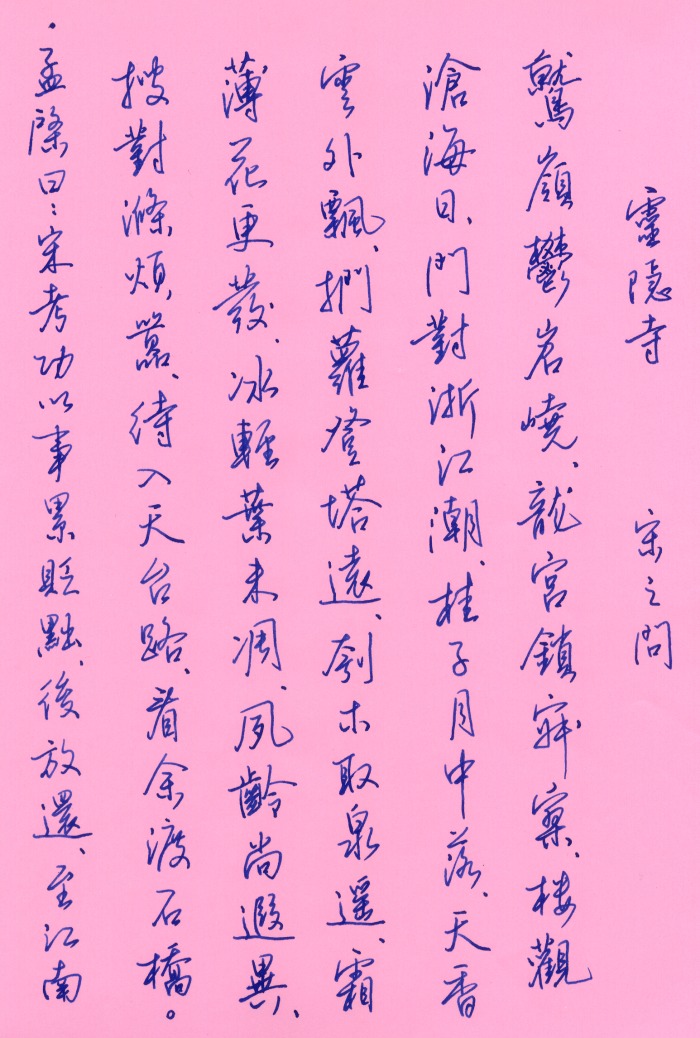 靈隱寺 宋之問
鷲嶺鬱岧嶢、龍宮鎖寂寞、楼觀
滄海日、門對浙江潮、桂子月中落、天香
雲外飄、捫蘿登塔遠、刳木取泉遥、霜
薄花更發、冰輕葉未凋、夙齡尚遐異、
搜對滌煩囂、待入天台路、看余渡石橋。
·孟棨曰:宋考功以事累貶黜、後放還、至江南